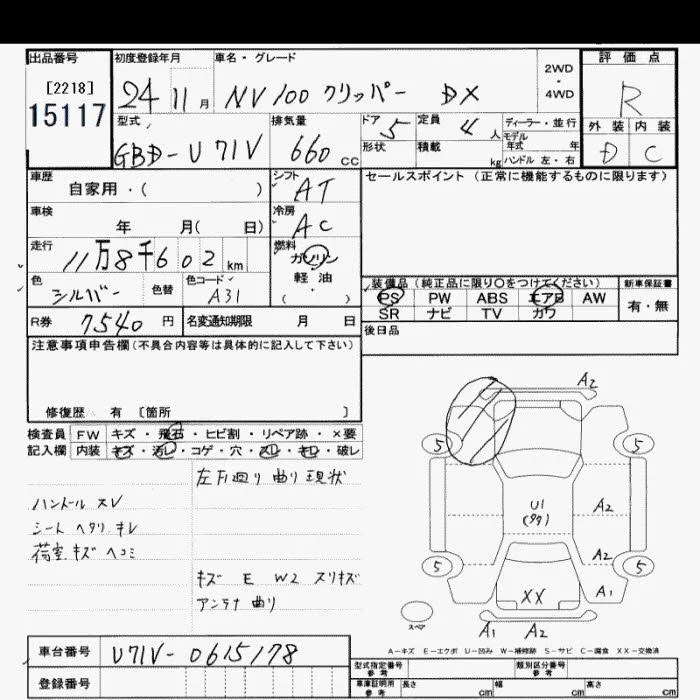 出品番号 [2218] 15117
初度登録年月 24 11月
車名・グレード NV100 クリッパー DX
2WD ・ 4WD
評価点 R
外装 内装
D C
型式 GBD-U71V
排気量 660 cc
ドア 5
形状
定員 4 人
積載 kg
ディーラー・並行
モデル年式 年
ハンドル 左・右
車歴 自家用・( )
シフト AT
セールスポイント (正常に機能するものに限ります)
車検 年 月( 日)
冷房 AC
走行 11万8千602 km
燃料 ガソリン 軽油 ・ ( )
色 シルバー 色替
色コード A31
装備品 (純正品に限り○をつけてください) 新車保証書
PS PW ABS エアB AW 有・無
SR ナビ TV カワ
R券 7540 円
名変通知期限 月 日
後日品
注意事項申告欄 (不具合内容等は具体的に記入して下さい)
修復歴 有 〔箇所 〕
検査員 FW キズ・飛石・ヒビ割・リペア跡・×要
記入欄 内装 キズ・汚レ・コゲ・穴・スレ・キレ・破レ
左F廻り 曲り 現状
ハンドル スレ
シート ヘタリ キレ
荷室 キズ ヘコミ
キズ E W2 スリキズ
アンテナ 曲り
A2
5 5
U1 A2
A2
5 5
XX A1
スペア
A1 A2
A-キズ E-エクボ U-凹み W-補修跡 S-サビ C-腐食 XX-交換済
車台番号 U71V-0615178
登録番号
型式指定番号 参考 類別区分番号 参考
車庫証明用 参考 長さ cm 幅 cm 高さ cm